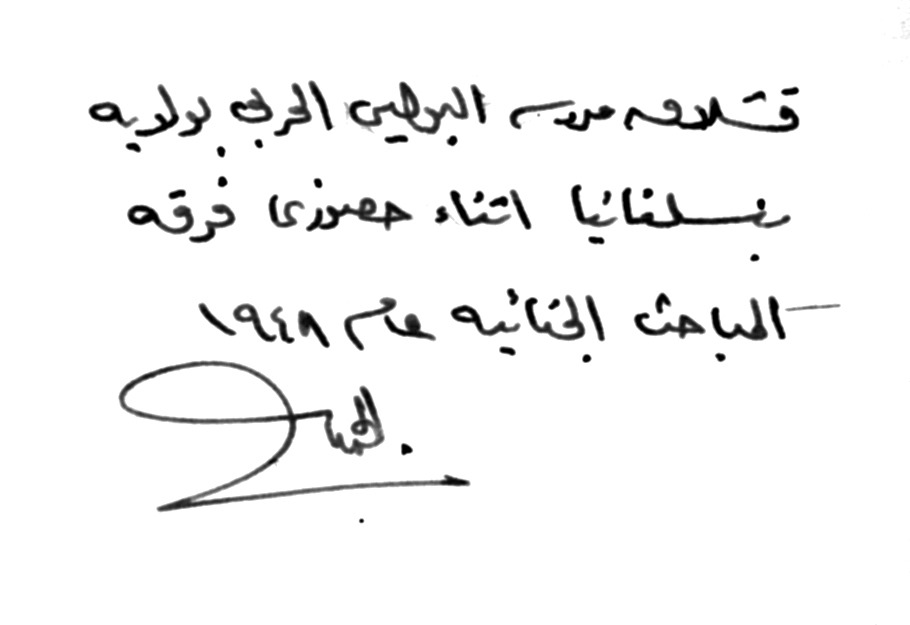 قشلاقه مدرسه البوليس الحربى بولايه
بنسلفانيا اثناء حضورى فرقه
المباحث الجنائيه عام ١٩٤٨